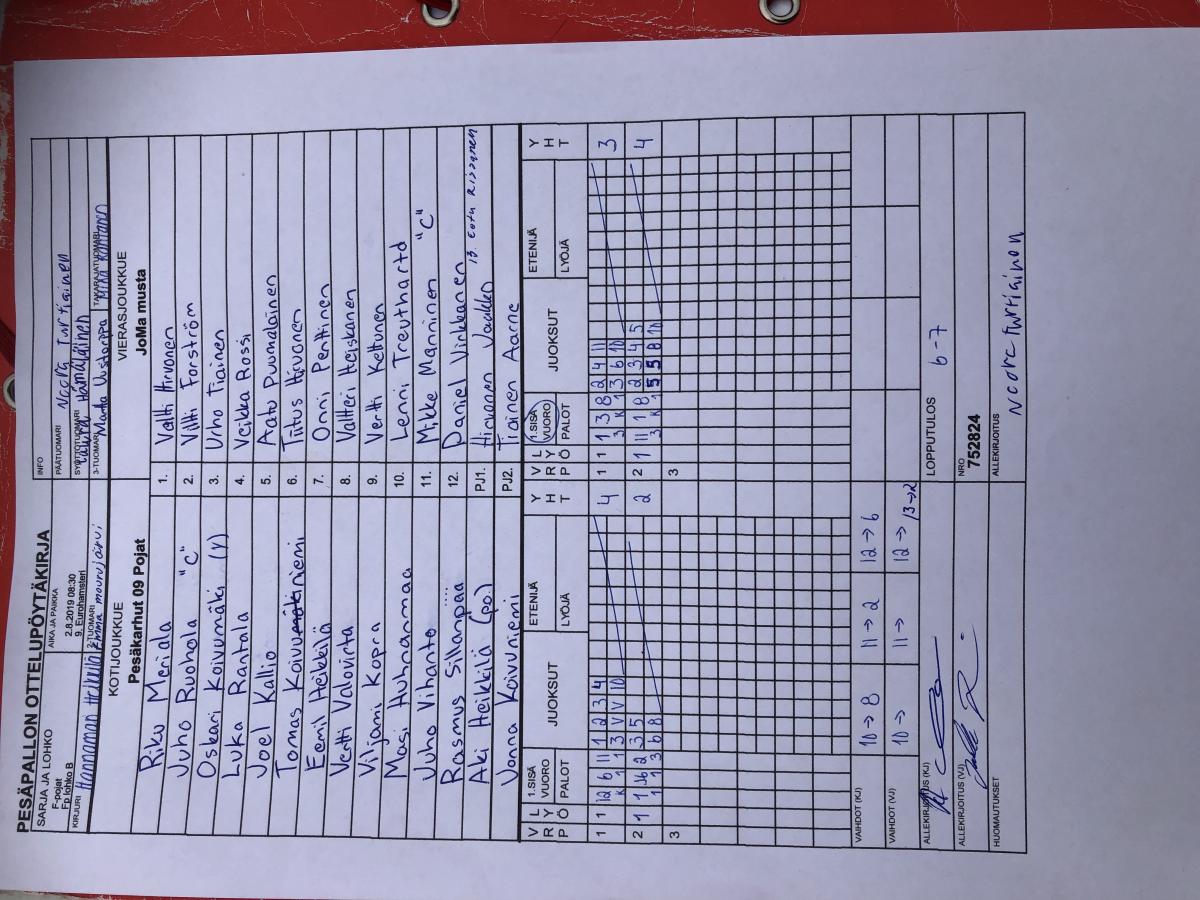 PESÄPALLON OTTELUPÖYTÄKIRJA
SARJA JA LOHKO
F-pojat
Fp lohko B
AIKA JA PAIKKA
2.8.2019 08:30
9. Eurohamsteri
INFO
PÄÄTUOMARI Noora Turtiainen
SYÖTTÖTUOMARI Laura Hämäläinen
KIRJURI
2-TUOMARI Emma mourujärvi
3-TUOMARI
TAKARAJATUOMARI
KOTIJOUKKUE
Pesäkarhut 09 Pojat
VIERASJOUKKUE
JoMa musta
Riku Meriala 1. Veltti Hirvonen
Juho Ruohola "C" 2. Viltti Forström
Oskari Koivumäki (Y) 3. Urho Tiainen
Luka Rantala 4. Veikka Rossi
Joel Kallio 5. Aatu Puumalainen
Tomas Koivuniemi 6. Tiitus Hirvonen
Eemil Heikkilä 7. Onni Penttinen
Vertti Valovirta 8. Valtteri Heiskanen
Viljami Kopra 9. Vertti Kettunen
Masi Huhnanmaa 10. Lenni Treuthardt
Juho Vihanto 11. Mikke Manninen "C"
Rasmus Sillanpää 12. Daniel Virkkanen
Aki Heikkilä (po) PJ1. Hirvonen 13. Eetu Rissanen
Joona Koivuniemi PJ2. Tiainen Aarne
V R P L Y Ö 1.SISÄ VUORO PALOT JUOKSUT ETENIJÄ LYÖJÄ Y H T
V R P L Y Ö 1.SISÄ VUORO PALOT JUOKSUT ETENIJÄ LYÖJÄ Y H T
1 1 12 6 11 1 2 3 4 4
K 1 1 3 V V 10
1 1 1 3 8 2 4 11 3
3 K 1 3 6 10
2 1 1 16 2 3 5 2
1 1 3 6 8
2 1 11 1 8 2 3 4 5 4
3 K 1 5 5 8 10
3
3
VAIHDOT (KJ) 10→8 11→2 12→6
VAIHDOT (VJ) 10→ 11→ 12→ 13→2
ALLEKIRJOITUS (KJ)
LOPPUTULOS 6-7
ALLEKIRJOITUS (VJ)
NRO
752824
HUOMAUTUKSET
ALLEKIRJOITUS
Noora Turtiainen